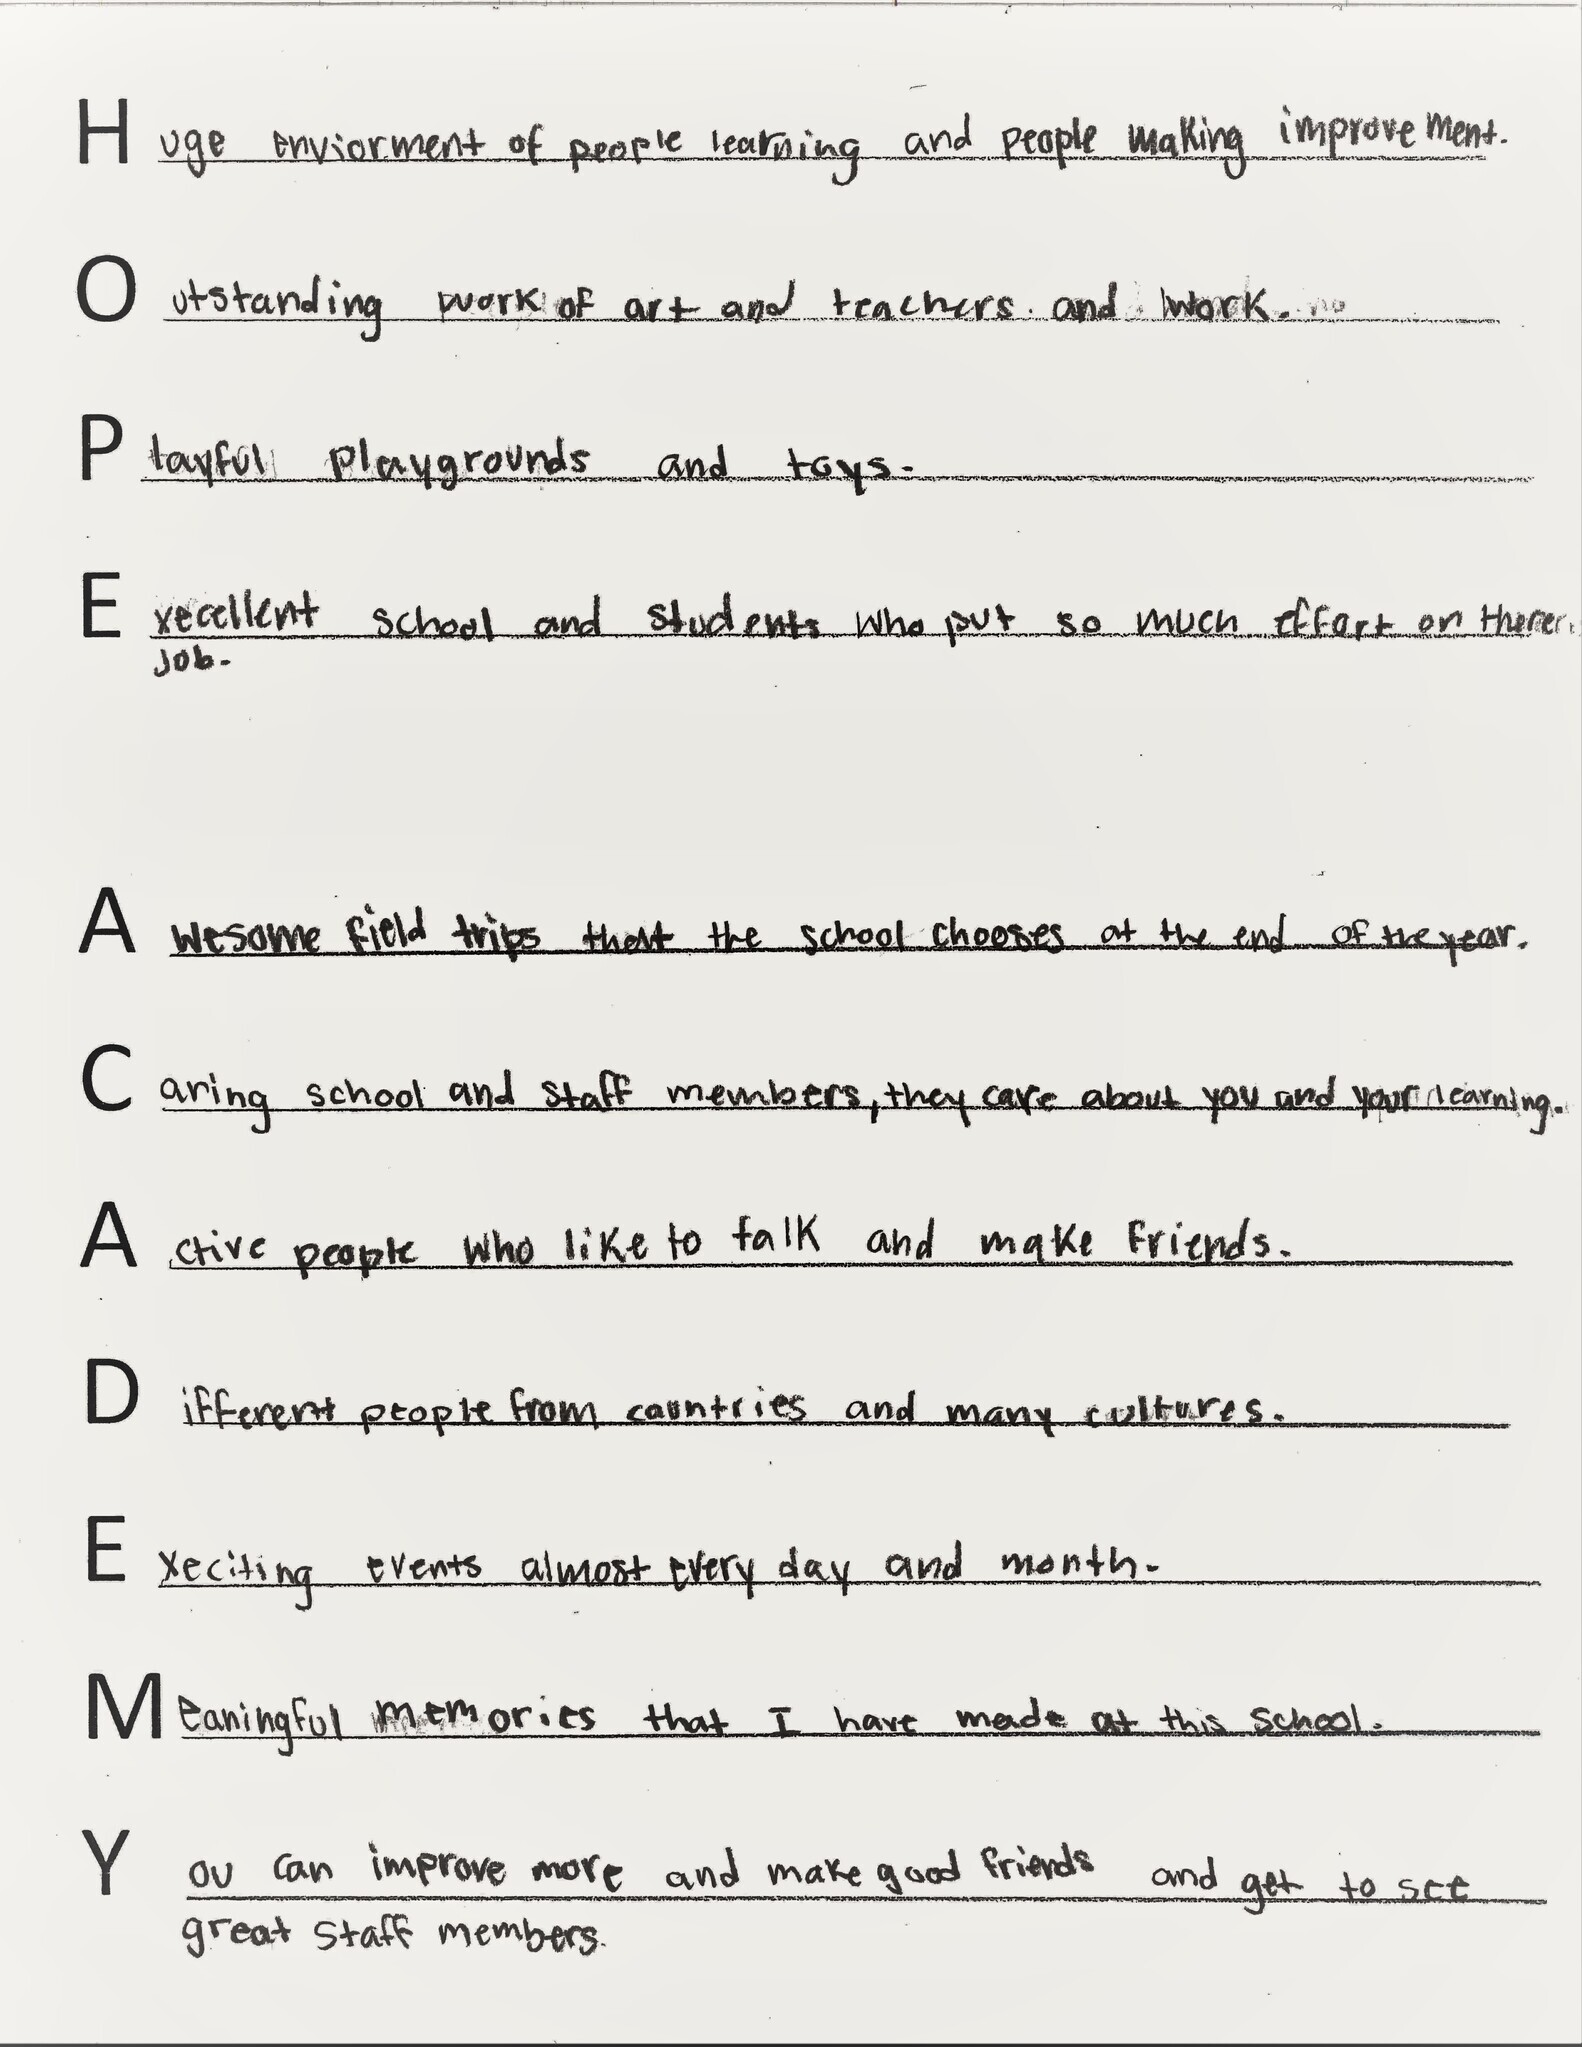 Huge enviorment of people learning and people making improvement.
Outstanding work of art and teachers and work.
Playful playgrounds and toys.
Execellent school and students who put so much effort on
job.
Awesome field trips that the school chooses at the end of the year.
Caring school and staff members, they care about you and your learning.
Active people who like to talk and make friends.
Different people from countries and many cultures.
Execiting events almost every day and month.
Meaningful memories that I have made at this school.
You can improve more and make good friends and get to see
great staff members.